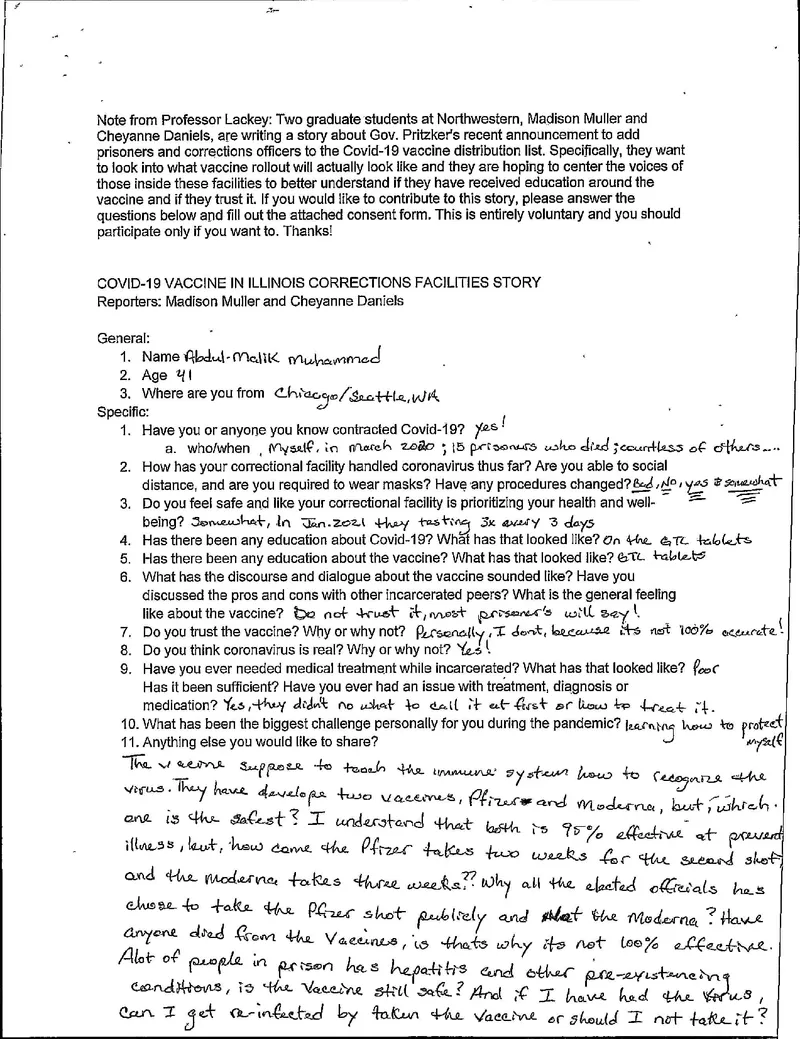 Note from Professor Lackey: Two graduate students at Northwestern, Madison Muller and
Cheyanne Daniels, are writing a story about Gov. Pritzker's recent announcement to add
prisoners and corrections officers to the Covid-19 vaccine distribution list. Specifically, they want
to look into what vaccine rollout will actually look like and they are hoping to center the voices of
those inside these facilities to better understand if they have received education around the
vaccine and if they trust it. If you would like to contribute to this story, please answer the
questions below and fill out the attached consent form. This is entirely voluntary and you should
participate only if you want to. Thanks!
COVID-19 VACCINE IN ILLINOIS CORRECTIONS FACILITIES STORY
Reporters: Madison Muller and Cheyanne Daniels
General:
1. Name Abdul-Malik Muhammad
2. Age 41
3. Where are you from Chicago/Seattle, WA
Specific:
1. Have you or anyone you know contracted Covid-19? yes!
a. who/when , Myself, in march 2020; 15 prisoners who died; countless of others....
2. How has your correctional facility handled coronavirus thus far? Are you able to social
distance, and are you required to wear masks? Have any procedures changed? Bad, No, yes & somewhat
3. Do you feel safe and like your correctional facility is prioritizing your health and well-
being? Somewhat, In Jan. 2021 they testing 3x every 3 days
4. Has there been any education about Covid-19? What has that looked like? On the GTL tablets
5. Has there been any education about the vaccine? What has that looked like? GTL tablets
6. What has the discourse and dialogue about the vaccine sounded like? Have you
discussed the pros and cons with other incarcerated peers? What is the general feeling
like about the vaccine? Do not trust it, most prisoner's will say!
7. Do you trust the vaccine? Why or why not? Personally, I dont, because its not 100% accurate!
8. Do you think coronavirus is real? Why or why not? Yes!
9. Have you ever needed medical treatment while incarcerated? What has that looked like? Poor
Has it been sufficient? Have you ever had an issue with treatment, diagnosis or
medication? Yes, they didn't no what to call it at first or how to treat it.
10. What has been the biggest challenge personally for you during the pandemic? learning how to protect
myself
11. Anything else you would like to share?
The vaccine suppose to teach the immune system how to recognize the
virus. They have develope two vaccines, Pfizer and Moderna, but, which
one is the safest? I understand that both is 95% effective at prevent
illness, but, how come the Pfizer takes two weeks for the second shot
and the moderna takes three weeks?? Why all the elected officials has
chose to take the Pfizer shot publicly and not the Moderna? Have
anyone died from the Vaccines, is thats why its not 100% effective.
Alot of people in prison has hepatitis and other pre-existancing
conditions, is the Vaccine still safe? And if I have had the virus,
can I get re-infected by taken the vaccine or should I not take it?